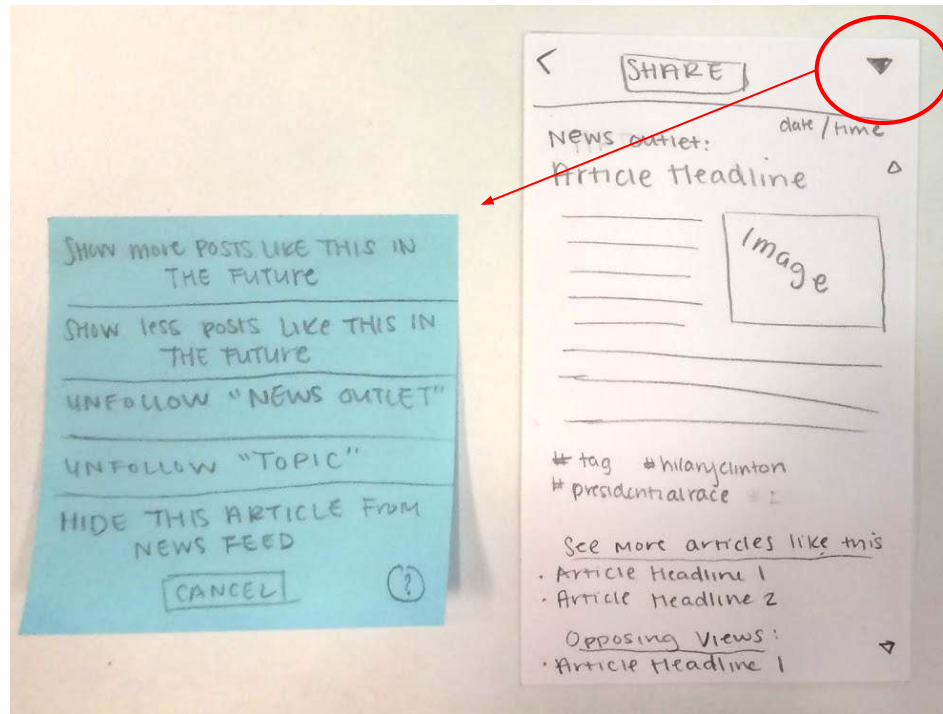 SHOW more POSTS LIKE THIS IN
THE FUTURE
SHOW less POSTS LIKE THIS IN
THE FUTURE
UNFOLLOW "NEWS OUTLET"
UNFOLLOW "TOPIC"
HIDE THIS ARTICLE FROM
NEWS FEED
CANCEL
?
<
SHARE
date/time
News outlet:
Article Headline
Image
# tag #hilaryclinton
# presidentialrace
See more articles like this
· Article Headline 1
· Article Headline 2
Opposing Views:
· Article Headline 1